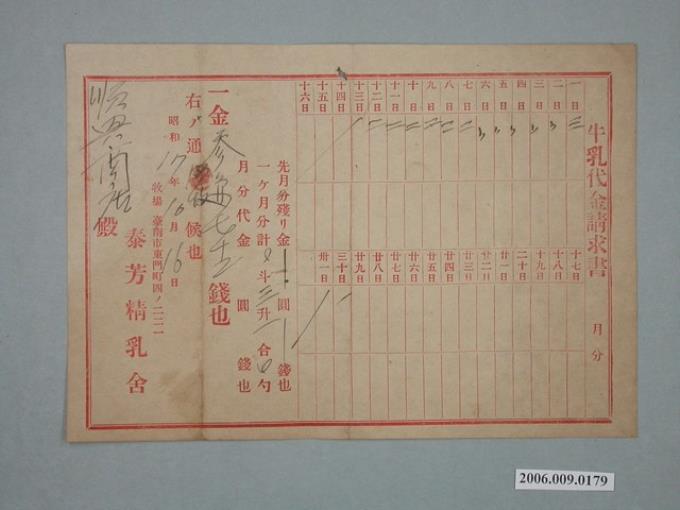 牛乳代金請求書
月分
一日
二日
三日
四日
五日
六日
七日
八日
九日
十日
十一日
十二日
十三日
十四日
十五日
十六日
十七日
十八日
十九日
二十日
廿一日
廿二日
廿三日
廿四日
廿五日
廿六日
廿七日
廿八日
廿九日
三十日
卅一日
先月分殘リ金 圓 錢也
一ヶ月分計 斗三升一合 勺
月分代金 圓 錢也
一金 七 五 錢也
右ノ通 候也
昭和17年10月16日
牧場 臺南市東門町四ノ二二一
泰芳精乳舍
順興商店 殿
2006.009.0179